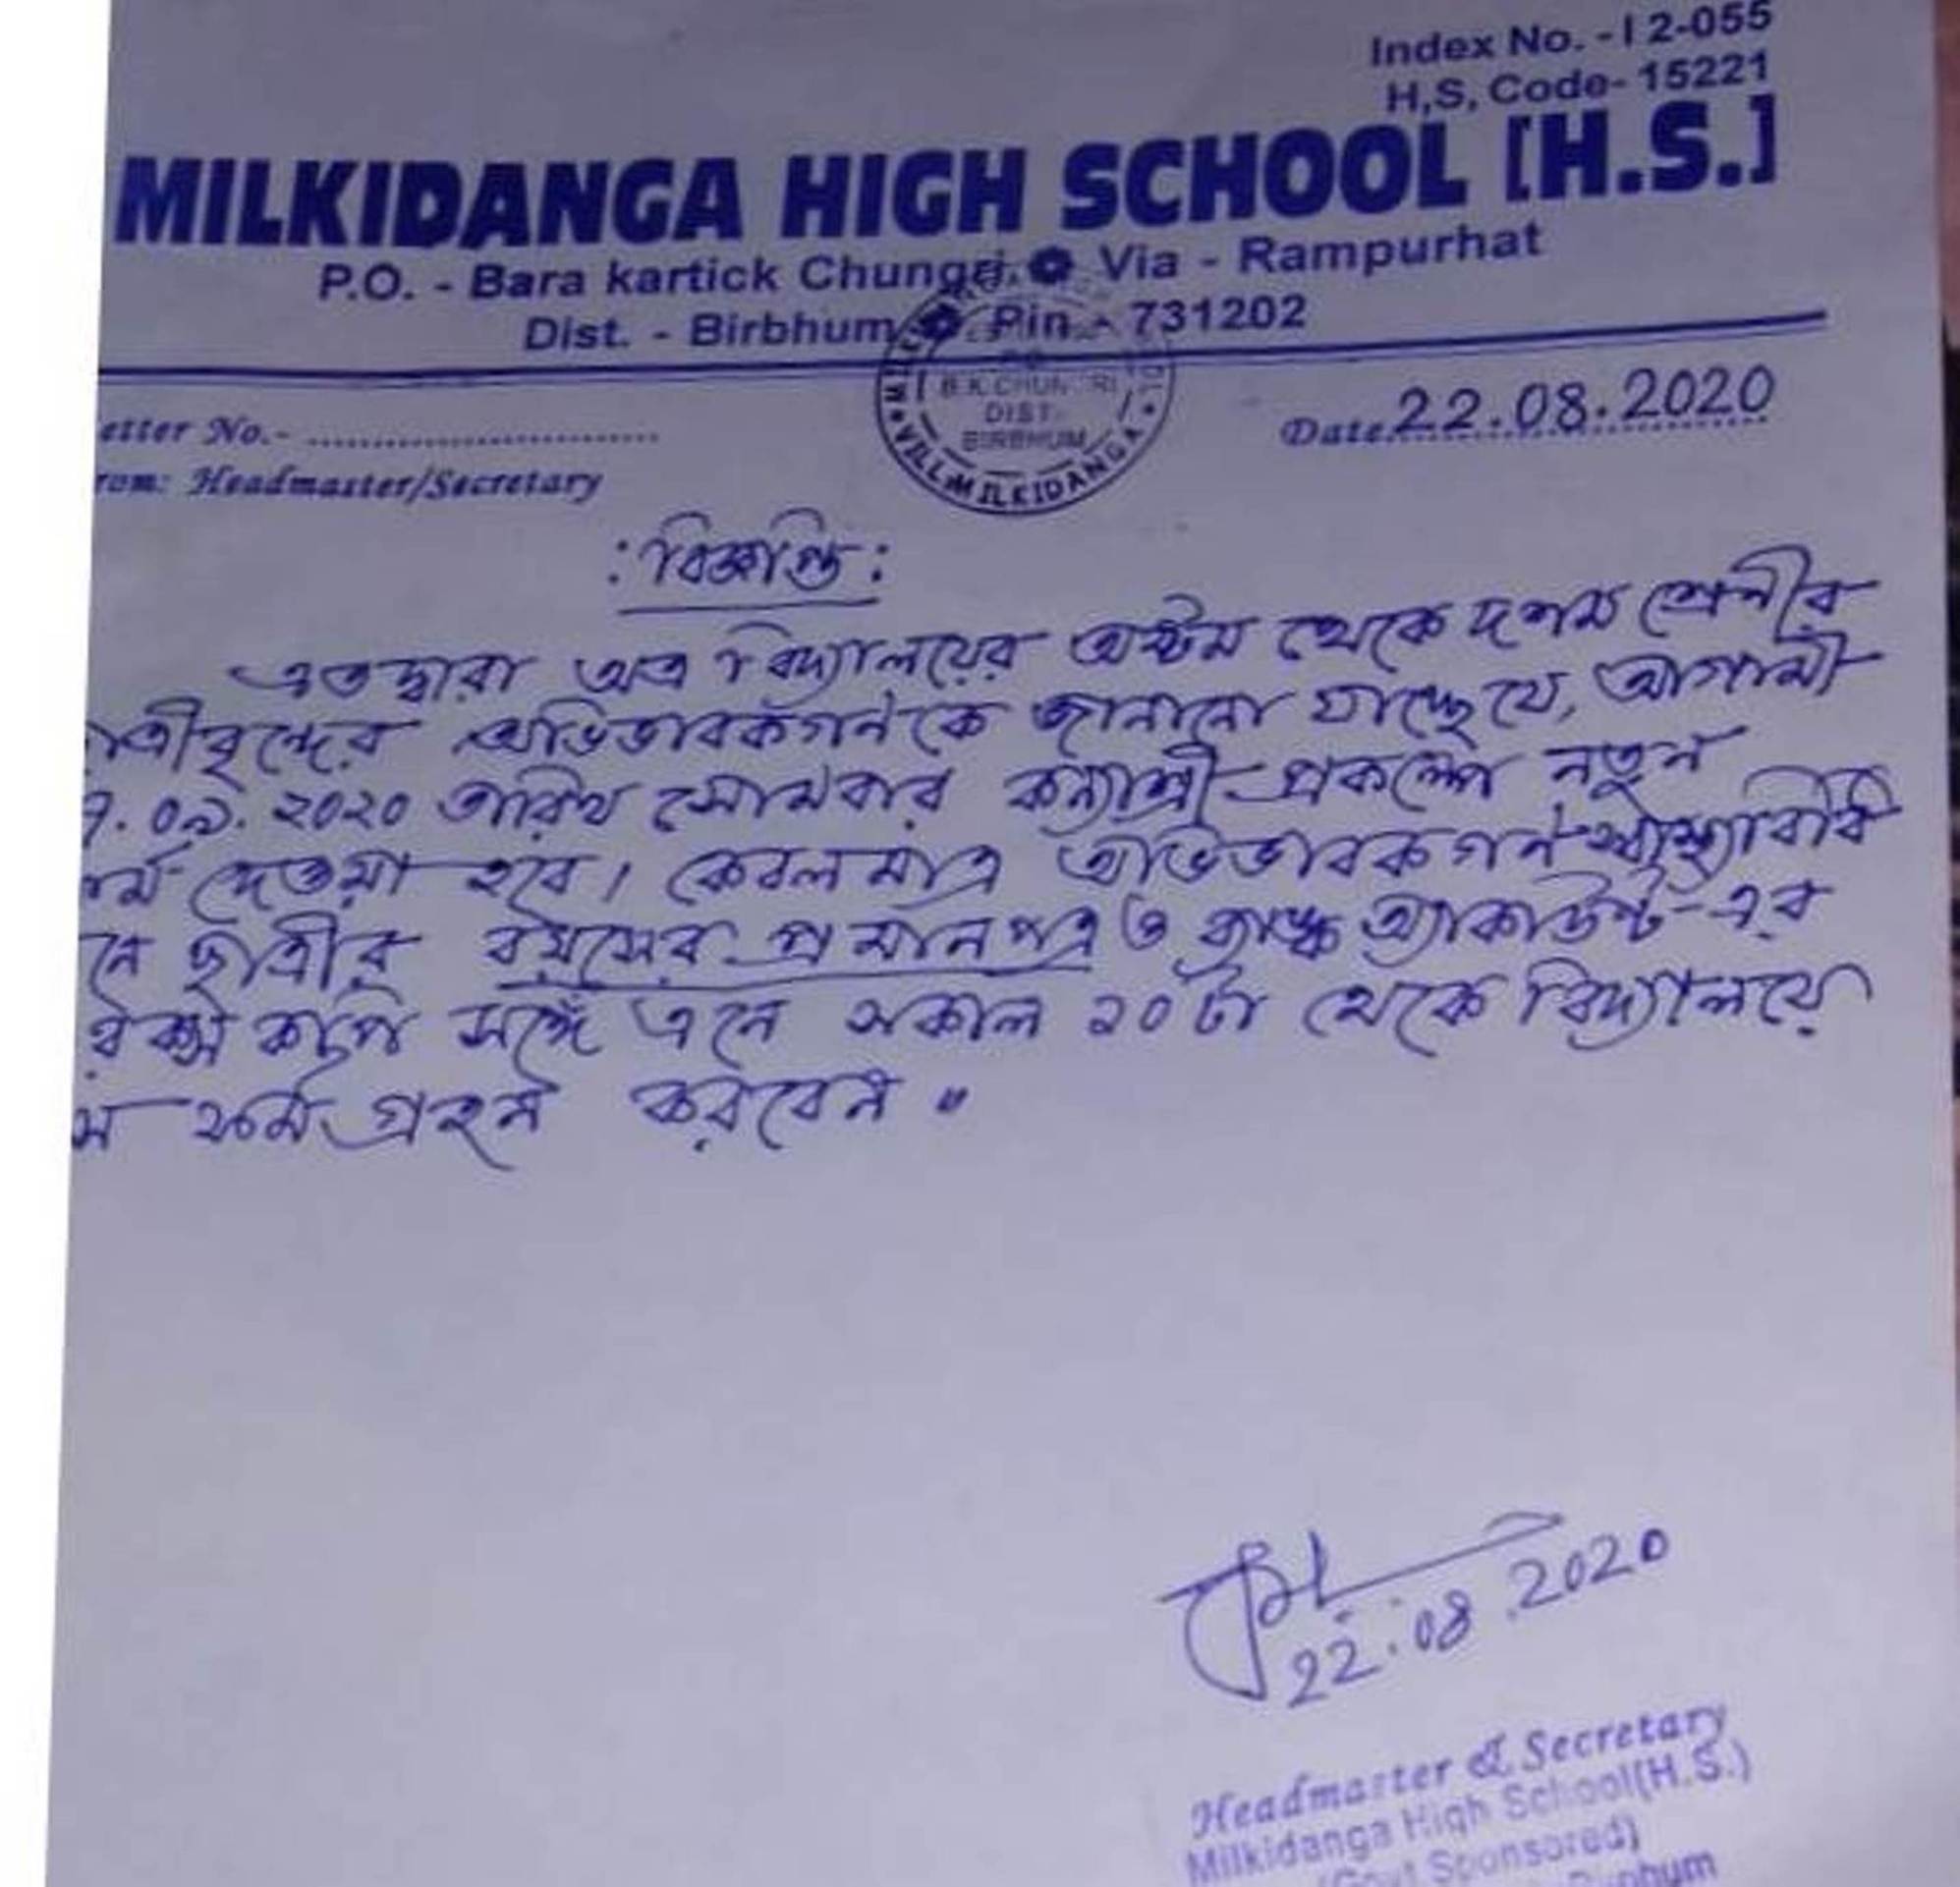 Index No. - I 2-055
H,S, Code- 15221
MILKIDANGA HIGH SCHOOL [H.S.]
P.O. - Bara kartick Chungri. Via - Rampurhat
Dist. - Birbhum Pin - 731202
B.K.CHUNGRI
DIST.
BIRBHUM
VILL. MILKIDANGA
etter No.- ............................
Date 22.08.2020
rom: Headmaster/Secretary
: বিজ্ঞপ্তি :
এতদ্বারা অত্র বিদ্যালয়ের অষ্টম থেকে দশম শ্রেণীর
াত্রীবৃন্দের অভিভাবকগনকে জানানো যাচ্ছে যে, আগামী
৭.০৯.২০২০ তারিখ সোমবার কন্যাশ্রী প্রকল্পে নতুন
র্ম দেওয়া হবে। কেবলমাত্র অভিভাবকগন স্বাস্থ্যবিধি
নে ছাত্রীর বয়সের প্রমানপত্র ও ব্যাঙ্ক অ্যাকাউন্ট-এর
রক্স কপি সঙ্গে এনে সকাল ১০টা থেকে বিদ্যালয়ে
স ফর্ম গ্রহন করবেন ॥
22.08.2020
Headmaster & Secretary
Milkidanga High School(H.S.)
(Govt Sponsored)